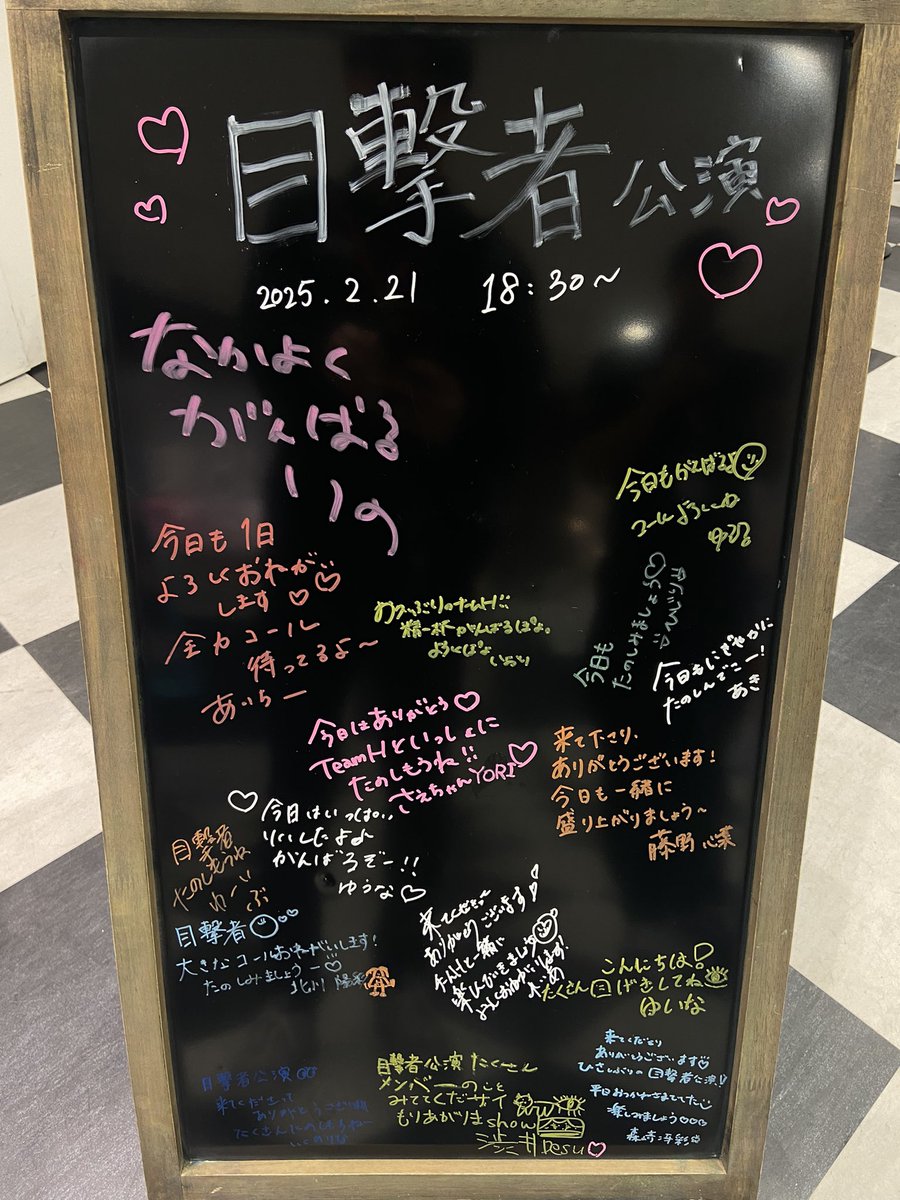 目撃者 公演
2025.2.21 18:30~
なかよく
がんばる
りの
今日も1日
よろしくおねがい
します♡♡
全力コール
待ってるよ〜
あいちー
今日もがんばるよ
コールよろしくね
ゆるる
今日も
たのしみましょう♡
精一杯がんばるぽよ。
よろぽよ
いおり
今日もにぎやかに
たのしんでこー!
あき
今日はありがとう♡
TeamHといっしょに
たのしもうね!!
さえちゃんYORI♡
来て下さり、
ありがとうございます!
今日も一緒に
盛り上がりましょう〜
藤野 心菜
♡今日はいっぱい
がんばるぞー!!
ゆうな♡
目撃者
たのしもうね
目撃者
大きなコールおねがいします!
たのしみましょうー♡
北川 陽彩
来てくださって
ありがとうございます!
一緒に
こんにちは!
たくさん目げきしてね
ゆいな
目撃者公演
来てくださって
ありがとうございます
たくさんたのしもうねー
目撃者公演 たくさん
メンバーのこと
みててくだーサイ
もりあがりまshow
渋井Desu♡
来てくださり
ありがとうございます♡
ひさしぶりの目撃者公演!
平日おつかれさまでした
楽しみましょう♡♡♡
森﨑冴彩